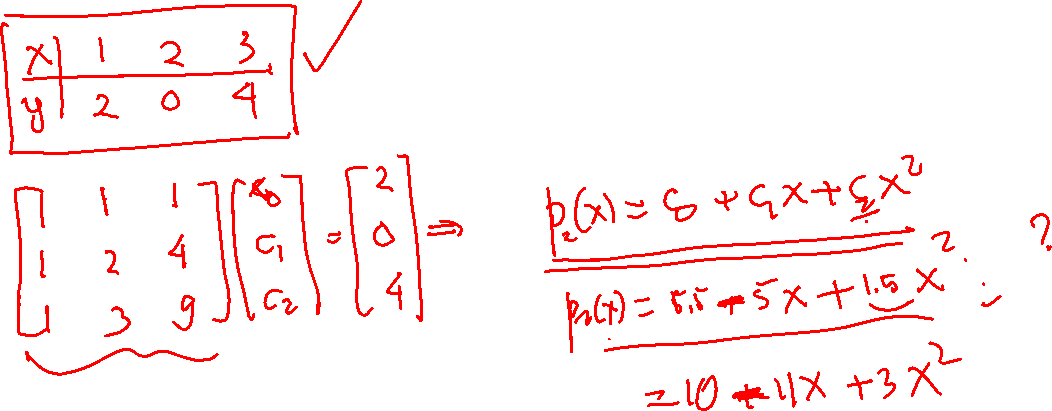 x | 1 2 3
y | 2 0 4
[1 1 1; 1 2 4; 1 3 9] [c₀; c₁; c₂] = [2; 0; 4] ⇒
p₂(x) = c₀ + c₁x + c₂x²
?
p₂(x) = 5.5 - 5x + 1.5x²
= 10 - 11x + 3x²